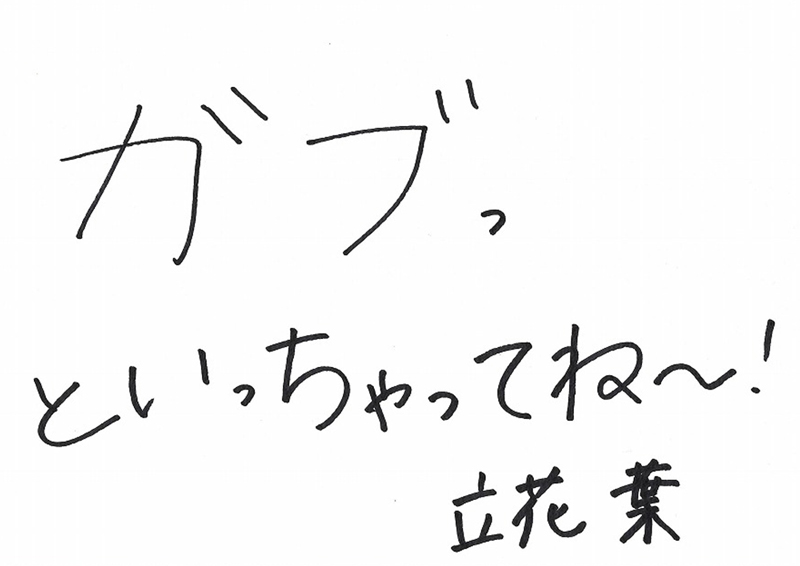 ガブっ
といっちゃってね～!
立花 葉